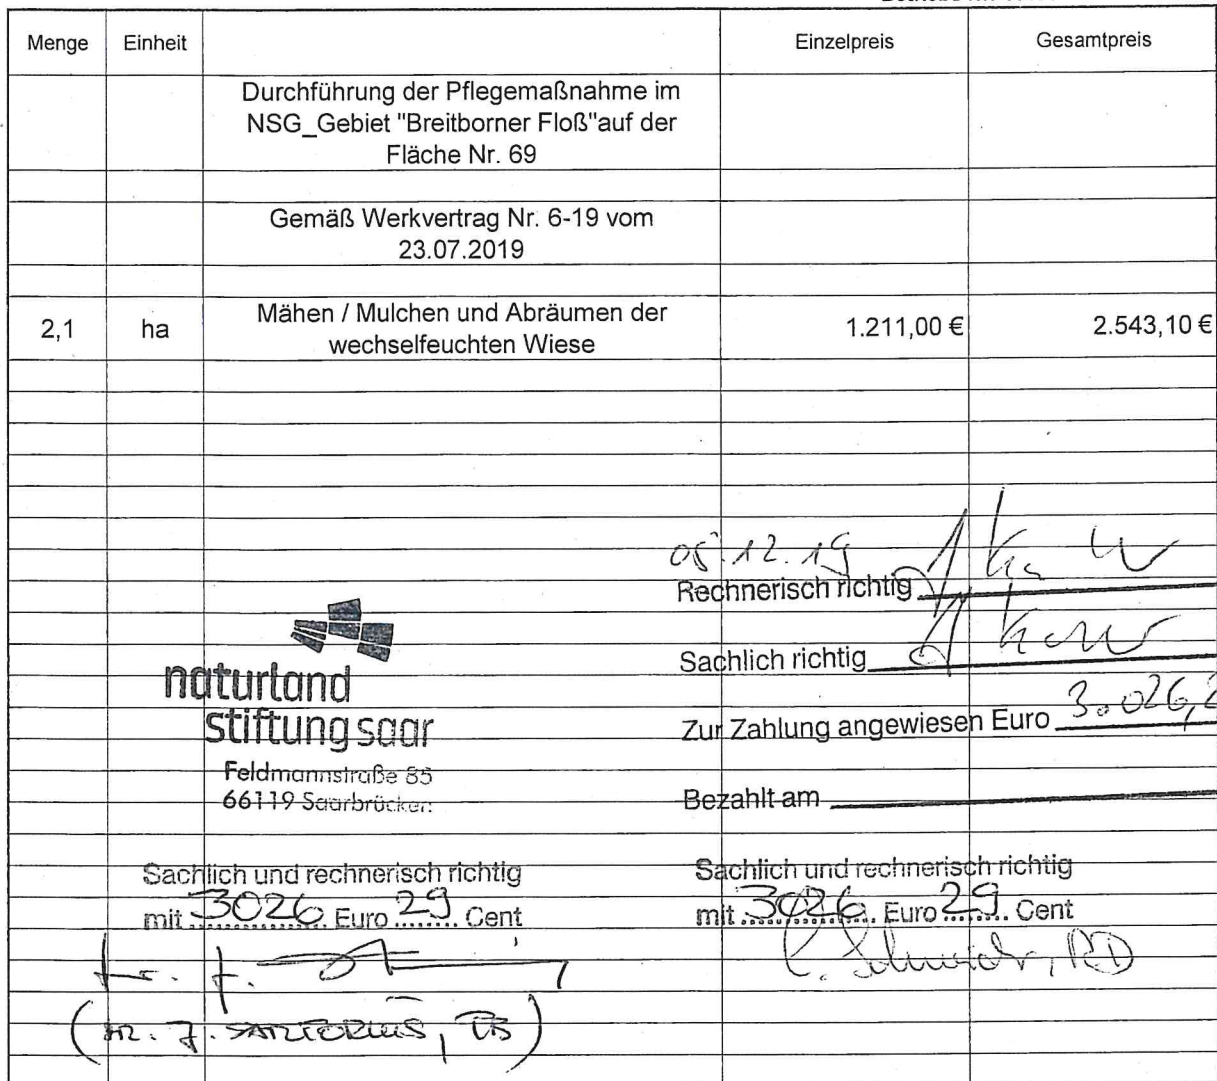 Menge Einheit Einzelpreis Gesamtpreis
Durchführung der Pflegemaßnahme im
NSG_Gebiet "Breitborner Floß"auf der
Fläche Nr. 69
Gemäß Werkvertrag Nr. 6-19 vom
23.07.2019
2,1 ha Mähen / Mulchen und Abräumen der wechselfeuchten Wiese 1.211,00 € 2.543,10 €
05.12.19
Rechnerisch richtig
Sachlich richtig
naturland
stiftung saar
Feldmannstraße 85
66119 Saarbrücken
Zur Zahlung angewiesen Euro 3.026,2
Bezahlt am
Sachlich und rechnerisch richtig
mit 3026 Euro 29 Cent
(Dr. J. SARTORIUS, )
Sachlich und rechnerisch richtig
mit 3026 Euro 29 Cent
C. Schneider, RD